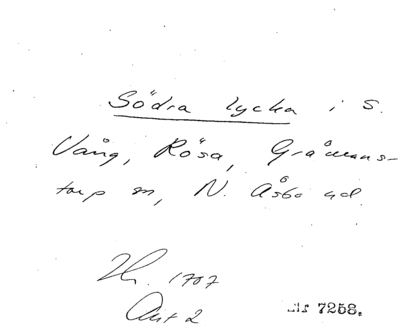 Södra lycka i S.
Vång, Rösa, Gråmans-
torp sn, N. Åsbo hd.
1707
Akt 2
7258.